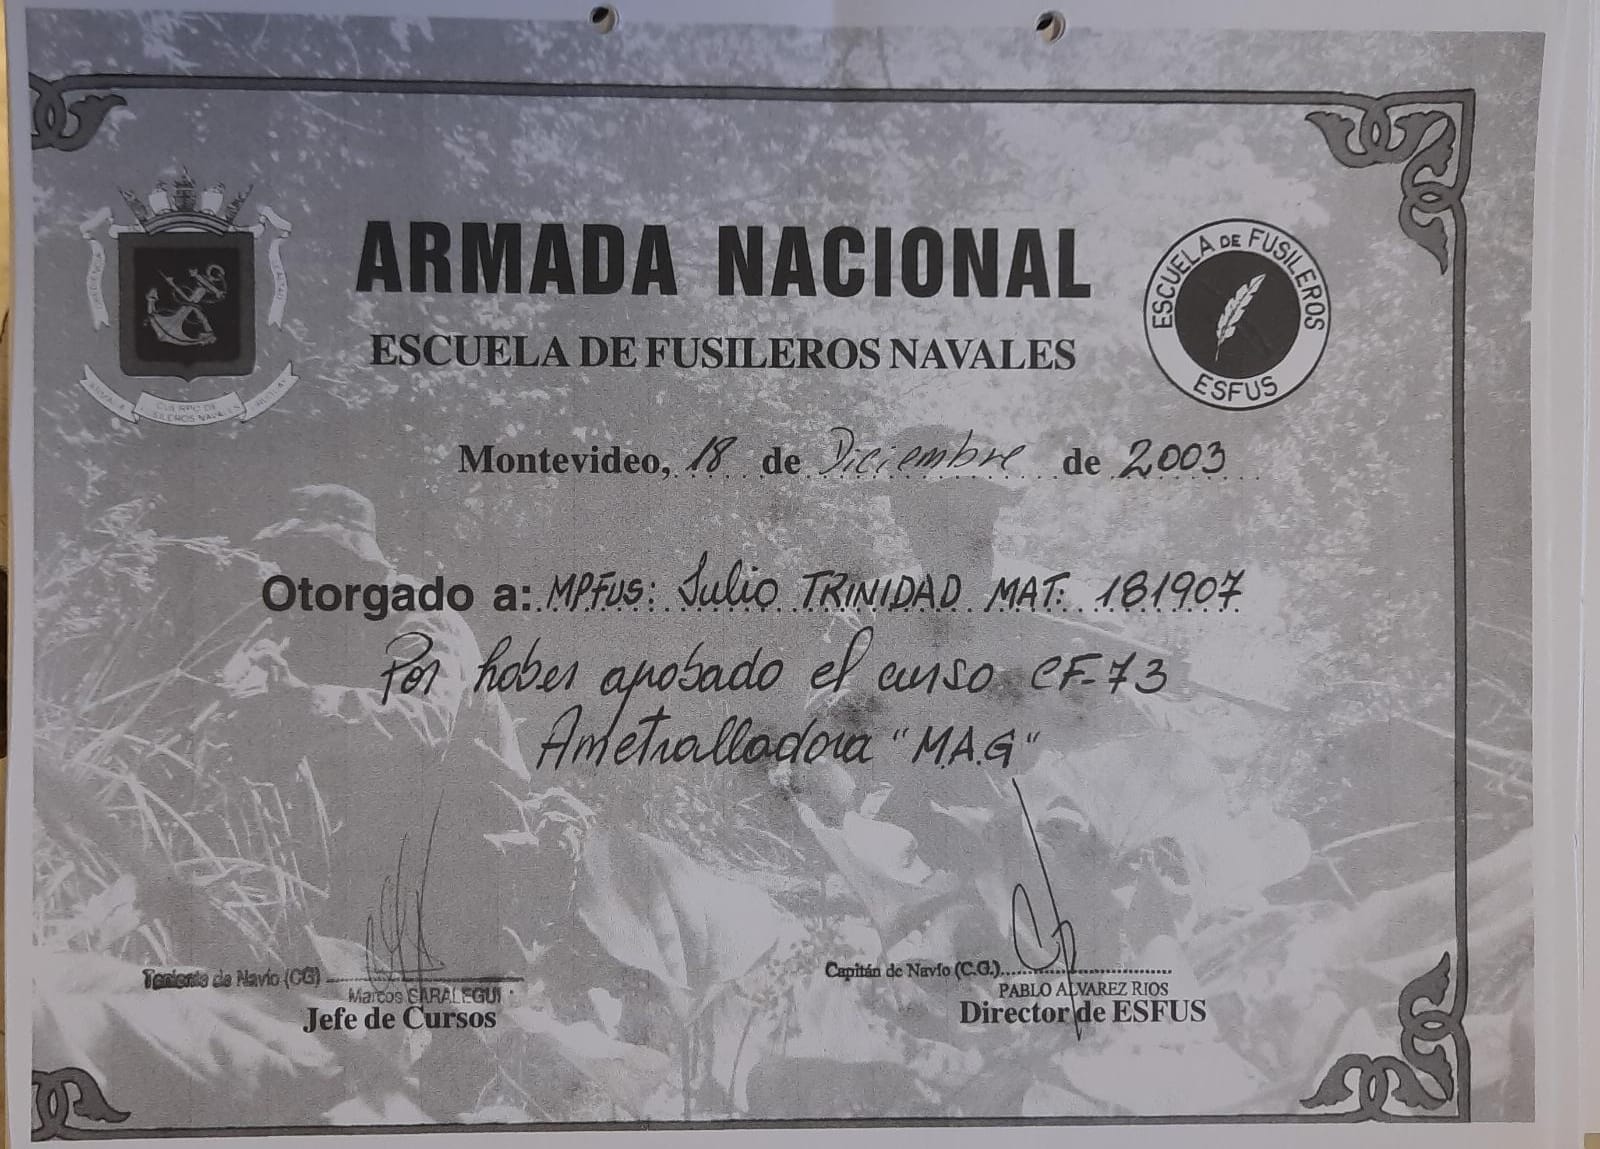 ARMADA NACIONAL
ESCUELA DE FUSILEROS NAVALES
ESCUELA DE FUSILEROS
ESFUS
CUERPO DE
FUSILEROS NAVALES
Montevideo, 18 de Diciembre de 2003
Otorgado a: MPFUS: Julio TRINIDAD MAT: 181907
Por haber aprobado el curso CF-73
Ametralladora "M.A.G"
Teniente de Navío (CG)
Marcos SARALEGUI
Jefe de Cursos
Capitán de Navío (C.G.)
PABLO ALVAREZ RIOS
Director de ESFUS